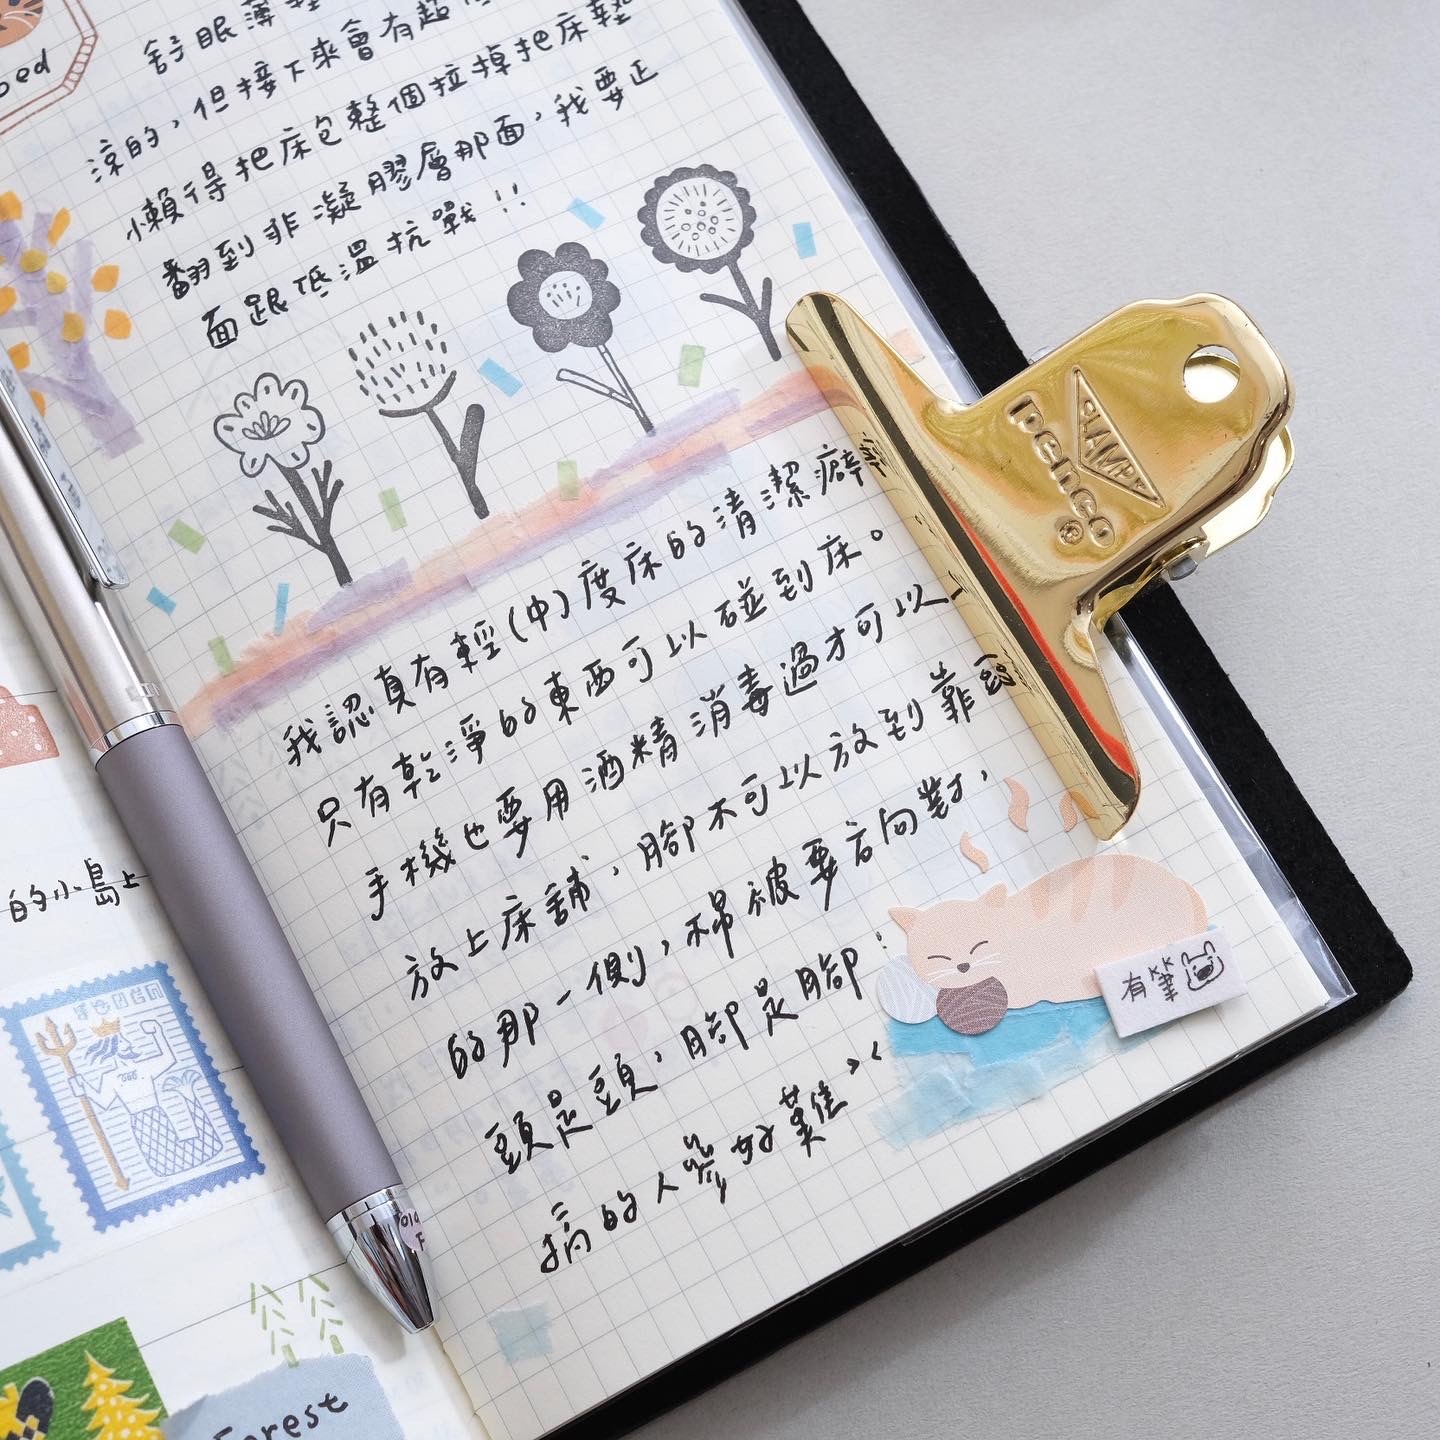 bed
舒眠薄墊
涼的，但接下來會有超低
懶得把床包整個拉掉把床墊
翻到非凝膠層那面，我要正
面跟低溫抗戰!!
我認真有輕(中)度床的清潔癖
只有乾淨的東西可以碰到床。
手機也要用酒精消毒過才可以
放上床舖，腳不可以放到靠頭
的那一側，棉被要方向對，
頭是頭，腳是腳
搞的人參好難><
有筆
CLAMPY
penco
®
的小島上
Forest